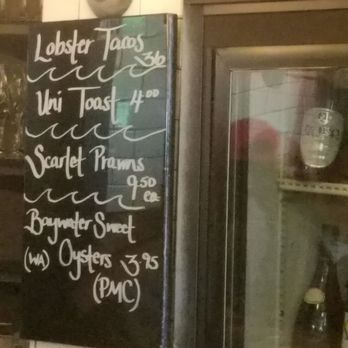 Lobster Tacos
3/6
Uni Toast 4.00
Scarlet Prawns
9.50
ea
Baywater Sweet
(WA) Oysters 3.95
(PMC)